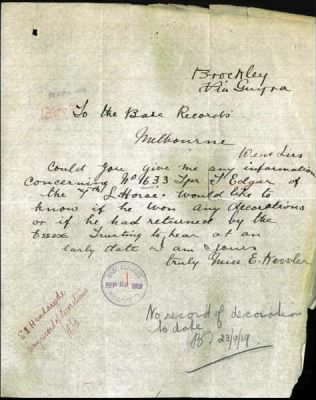 Brockley
Via Guyra
To the Base Records
Melbourne
Dear Sirs
Could you give me any information
concerning No 1633 Tpr T Edgar of
the 7th L Horse. Would like to
know if he won any decorations
or if he had returned by the
Essex Trusting to hear at an
early date I am Yours
truly Miss E. Kessler
SEP 1919
No record of decoration
to date
23/9/19